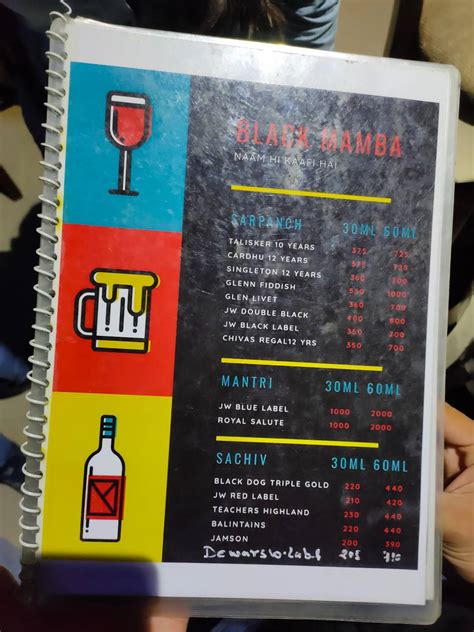 BLACK MAMBA
NAAM HI KAAFI HAI
SARPANCH 30ML 60ML
TALISKER 10 YEARS 375 725
CARDHU 12 YEARS 375 725
SINGLETON 12 YEARS 360 700
GLENN FIDDISH 550 1000
GLEN LIVET 360 700
JW DOUBLE BLACK 400 800
JW BLACK LABEL 360 700
CHIVAS REGAL 12 YRS 350 700
MANTRI 30ML 60ML
JW BLUE LABEL 1000 2000
ROYAL SALUTE 1000 2000
SACHIV 30ML 60ML
BLACK DOG TRIPLE GOLD 220 440
JW RED LABEL 210 420
TEACHERS HIGHLAND 230 440
BALINTAINS 220 440
JAMSON 200 390
Dewars